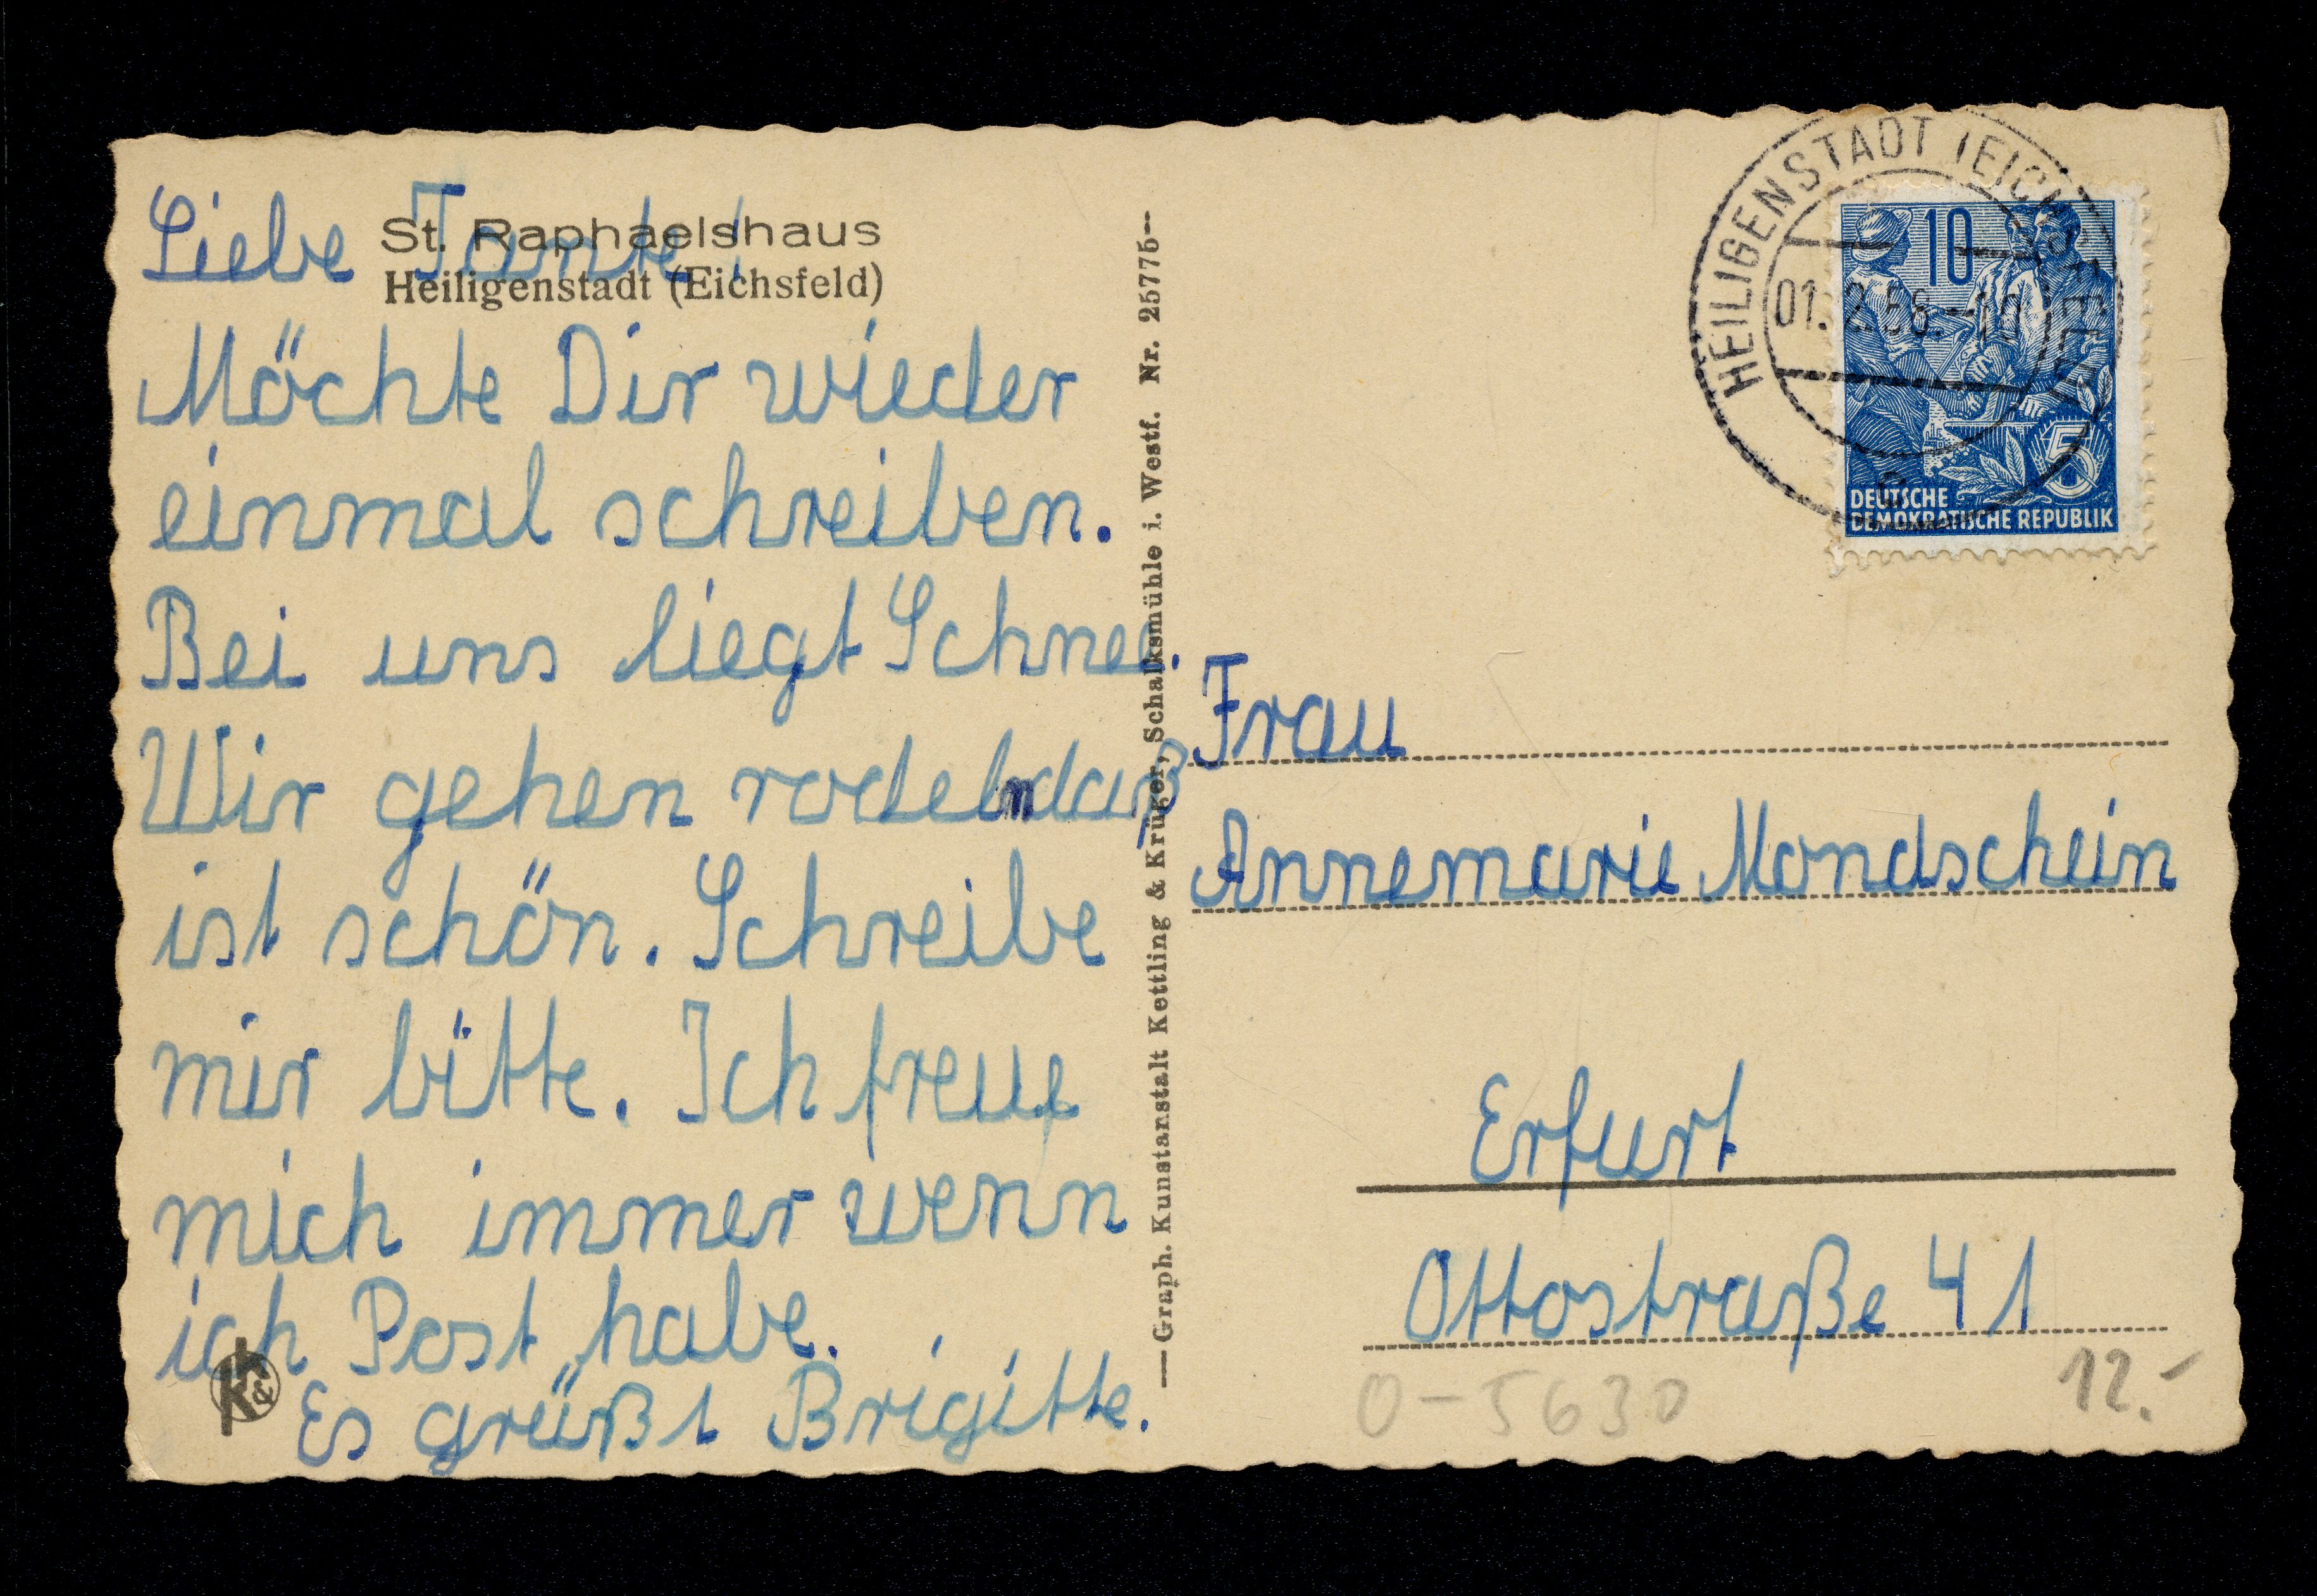 St. Raphaelshaus
Heiligenstadt (Eichsfeld)
Liebe Tante!
Möchte Dir wieder
einmal schreiben.
Bei uns liegt Schnee.
Wir gehen rodeln daß
ist schön. Schreibe
mir bitte. Ich freue
mich immer wenn
ich Post habe.
Es grüßt Brigitte.
K&K
— Graph. Kunstanstalt Kettling & Krüger, Schalksmühle i. Westf. Nr. 25775 —
HEILIGENSTADT (EICHSFELD)
01.2.58.-10
10
5
DEUTSCHE
DEMOKRATISCHE REPUBLIK
Frau
Annemarie Mondschein
Erfurt
Ottostraße 41
O-5630
12.-